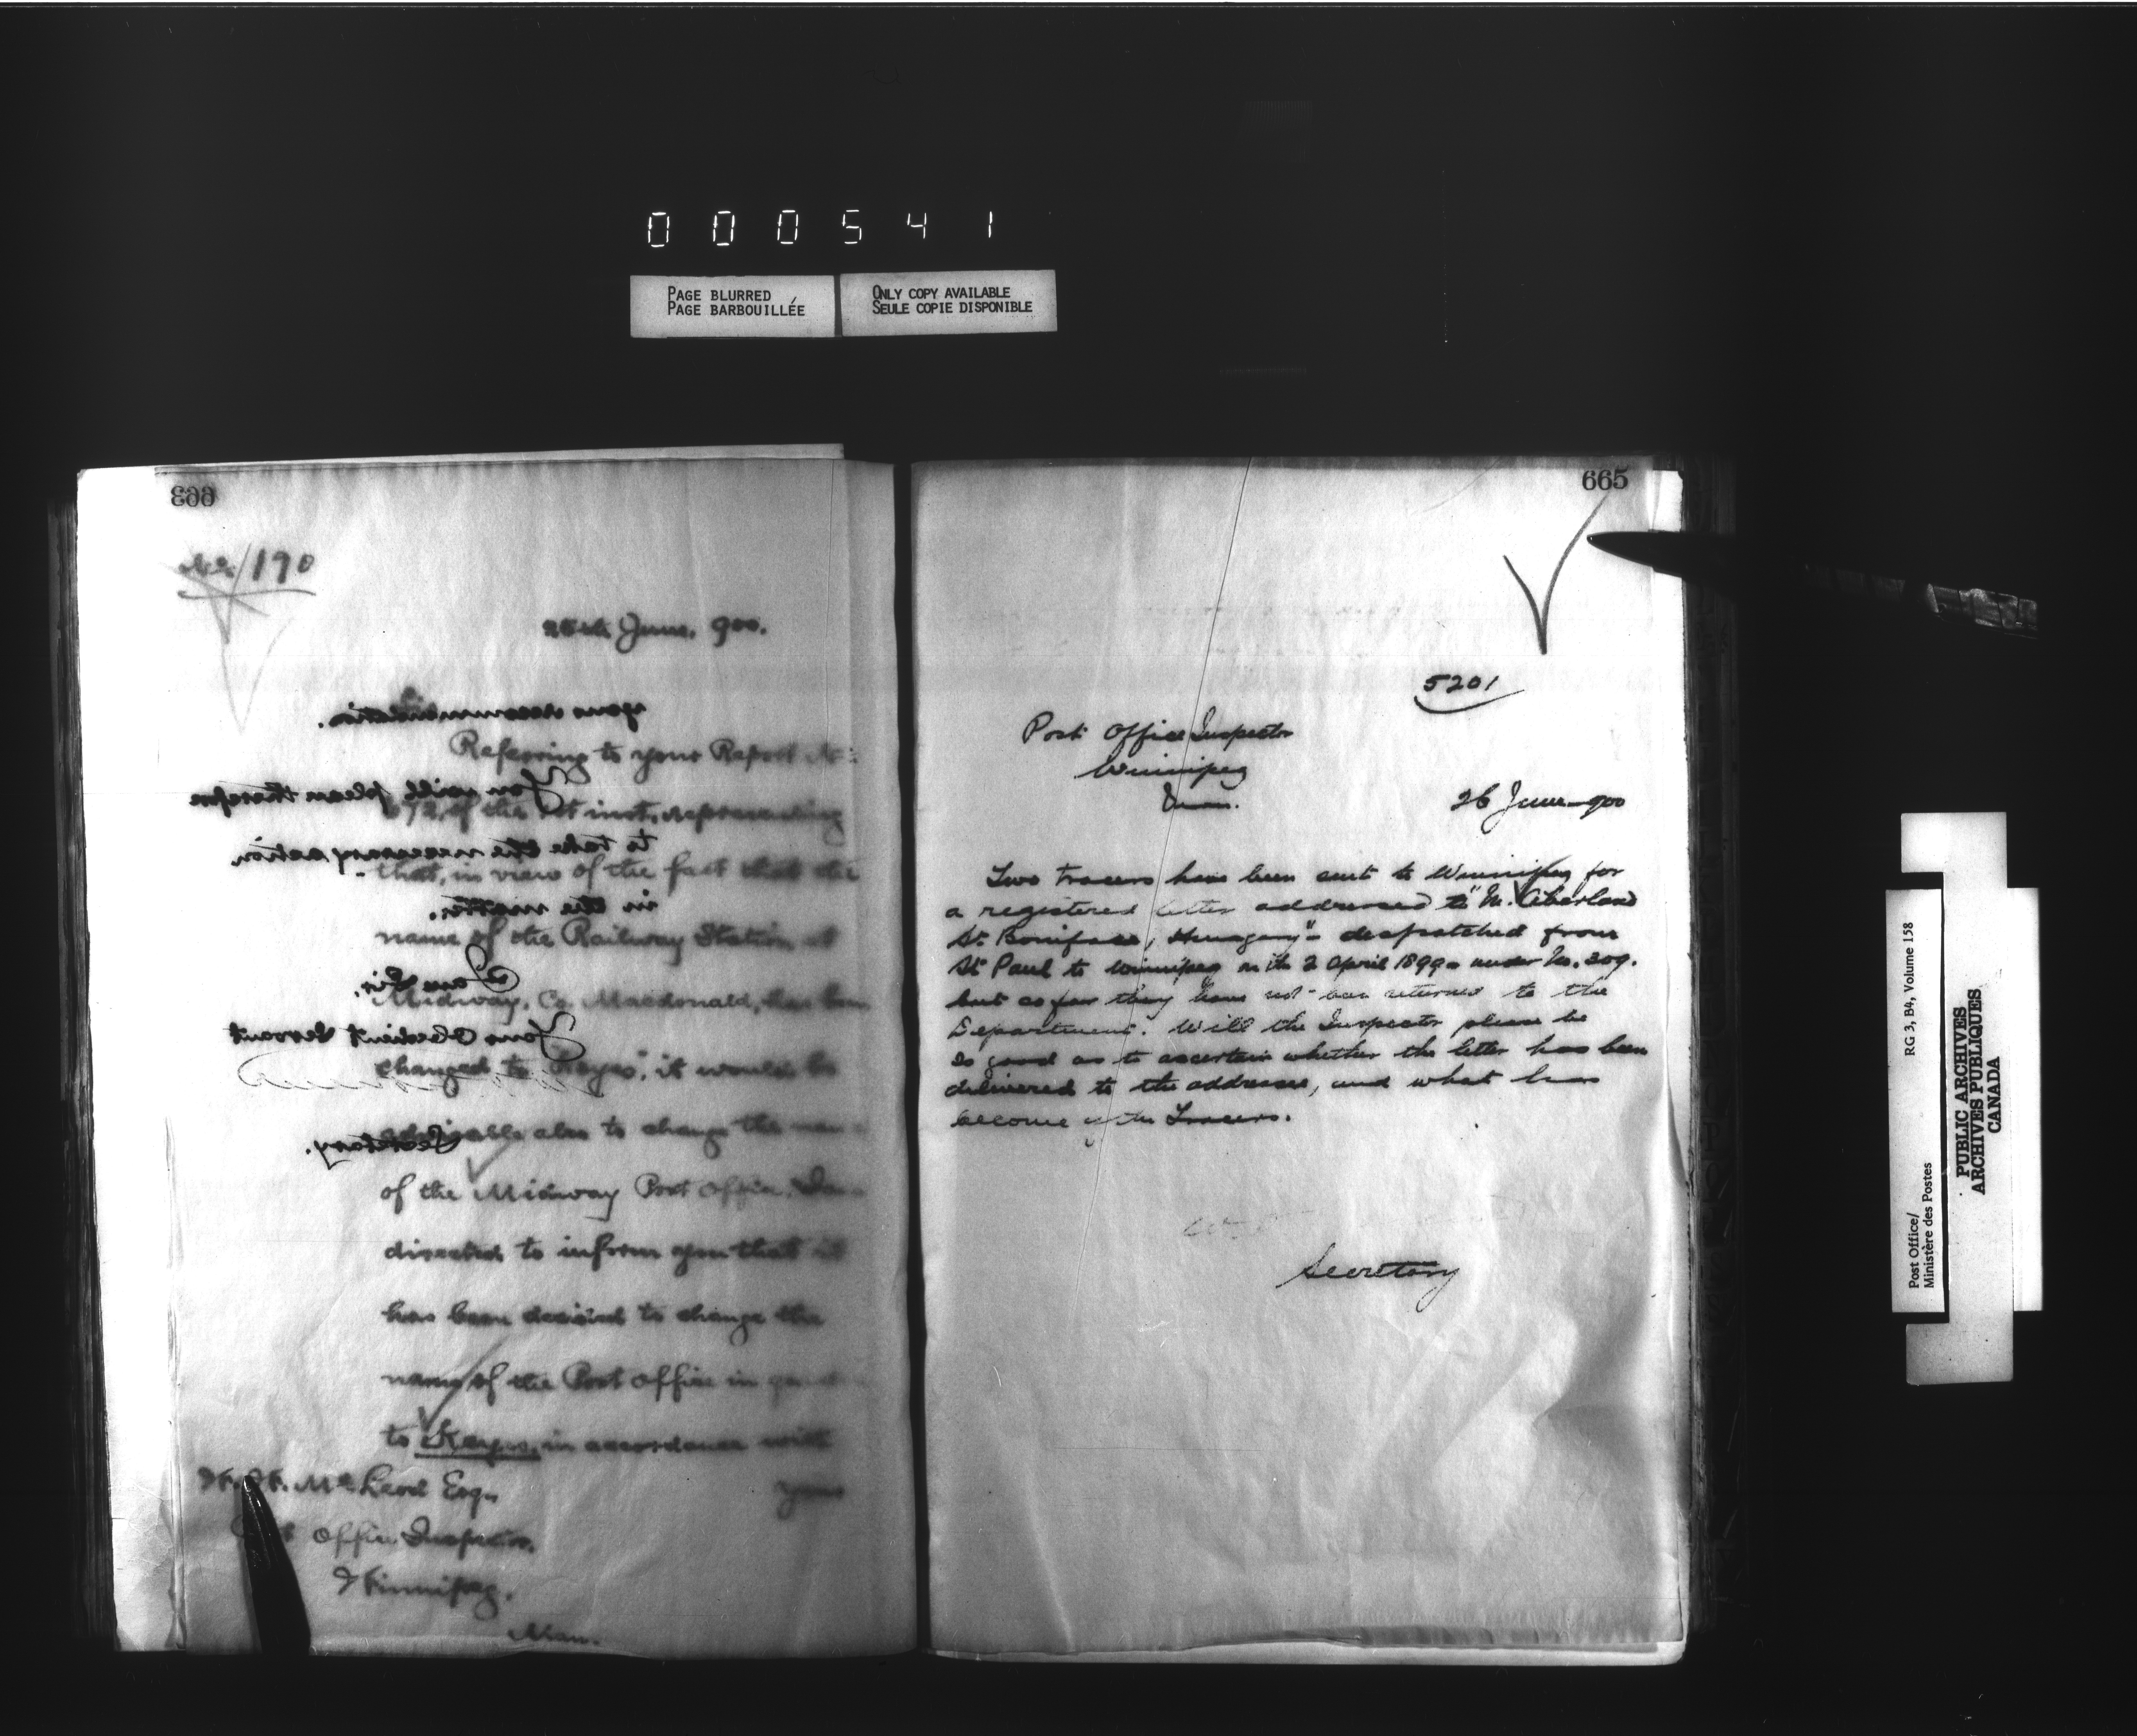 000541
PAGE BLURRED
PAGE BARBOUILLÉE
ONLY COPY AVAILABLE
SEULE COPIE DISPONIBLE
663
No. 190
26th June, 900.
Referring to your Report No.
672 of the 1st inst, representing
that, in view of the fact that the
name of the Railway Station at
Midway, Co. Macdonald, has been
changed to "Keyes", it would be
advisable also to change the name
of the Midway Post Office, I am
directed to inform you that it
has been decided to change the
name of the Post Office in
to Keyes, in accordance with
your
W. W. McLeod Esq.
Post Office Inspector.
Winnipeg.
Man.
your recommendation.
You will please therefore
to take the necessary action
in the matter.
I am Sir,
Your Obedient Servant
Secretary.
665
5201
Post Office Inspector
Winnipeg
Man.
26 June 900
Two tracers have been sent to Winnipeg for
a registered letter addressed to "M.
St. Boniface, Hungary" - despatched from
St Paul to Winnipeg on the 2 April 1899 - under No. 209.
but so far they have not been returned to the
Department. Will the Inspector please be
so good as to ascertain whether the letter has been
delivered to the addressee, and what has
become of the Tracers.
Secretary
Post Office/
Ministère des Postes
RG 3, B4, Volume 158
PUBLIC ARCHIVES
ARCHIVES PUBLIQUES
CANADA